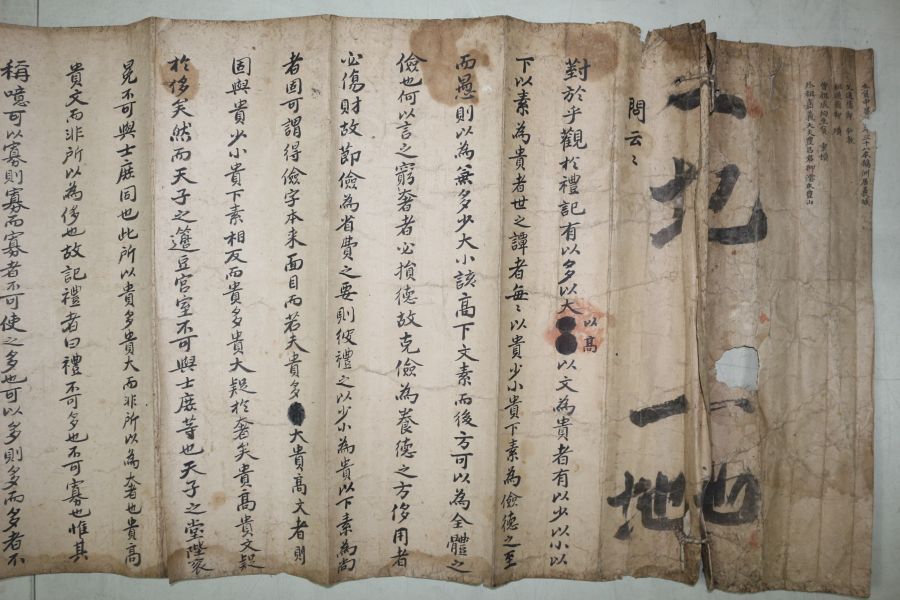 父通德郎
曾祖成均生員
外祖嘉義大夫
二九
一地
問云〻
對於乎觀於禮記有以多以大以高以文為貴者有以少以小以
下以素為貴者世之譚者每〻以貴少小貴下素為儉德之至
而愚則以為兼多少大小該高下文素而後方可以為全體之
儉也何以言之窮奢者必損德故克儉為養德之方侈用者
必傷財故節儉為省費之要則彼禮之以少小為貴以下素為尚
者固可謂得儉字本來面目而若夫貴多大貴高文者則
固與貴少小貴下素相反而貴多貴大疑於奢矣貴高貴文疑
於侈矣然而天子之籩豆宮室不可與士庶等也天子之堂陛袞
冕不可與士庶同也此所以貴多貴大而非所以為奢也貴高
貴文而非所以為侈也故記禮者曰禮不可多也不可寡也惟其
稱噫可以寡則寡而寡者不可使之多也可以多則多而多者不